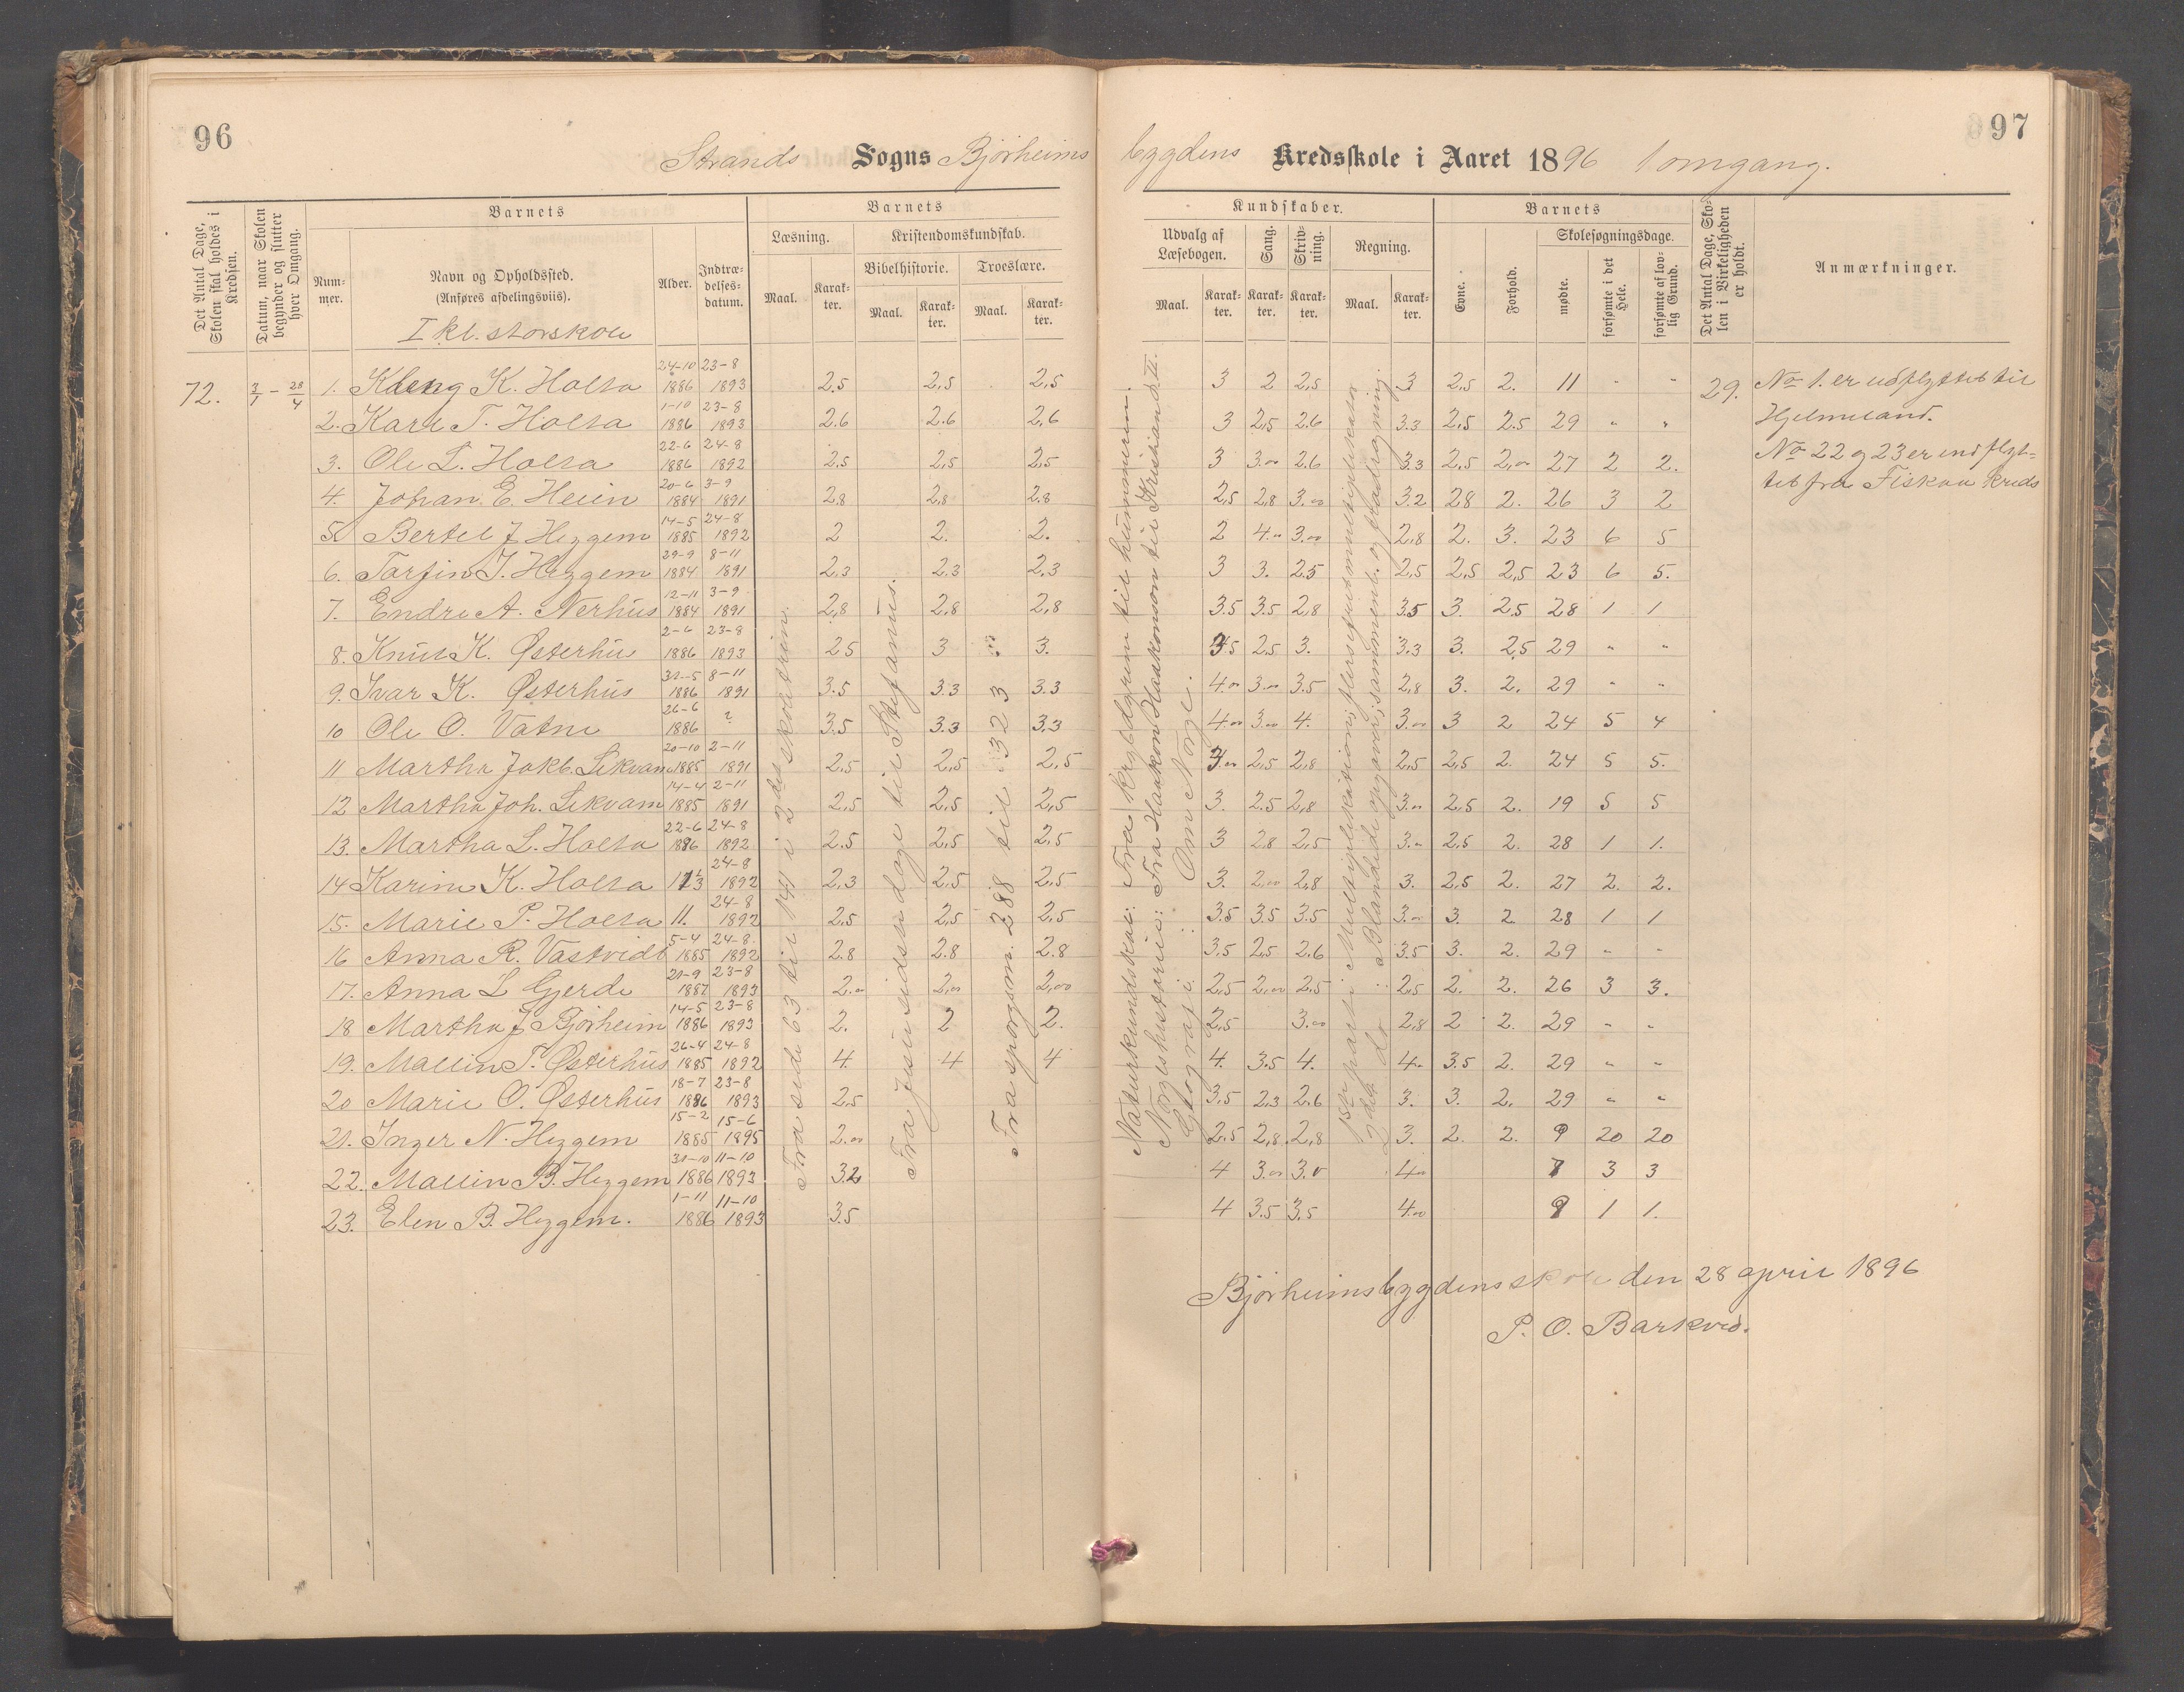 96
97
Strands Sogns Bjørheims bygdens Kredsskole i Aaret 1896 1 omgang.
Det Antal Dage, Skolen skal holdes i Kredsen.
Datum, naar Skolen begynder og slutter hver Omgang.
Barnets
Nummer.
Navn og Opholdssted.
(Anføres afdelingsviis).
I kl. storskole
Alder.
Indtrædelsesdatum.
Barnets
Læsning.
Maal.
Karakter.
Kristendomskundskab.
Bibelhistorie.
Maal.
Karakter.
Troeslære.
Maal.
Karakter.
Kundskaber.
Udvalg af Læsebogen.
Maal.
Karakter.
Sang.
Karakter.
Skrivning.
Karakter.
Regning.
Maal.
Karakter.
Barnets
Evne.
Forhold.
Skolesøgningsdage.
mødte.
forsømte i det Hele.
forsømte af lovlig Grund.
Det Antal Dage, Skolen i Virkeligheden er holdt.
Anmærkninger.
72. 3/1 – 28/4
1. K. Holta 24-10 1886 23-8 1893 2.5 2,5 2,5 3 2 2,5 3 2,5 2. 11 " " 29.
2. Karl T. Holta 1-10 1886 23-8 1893 2.6 2.6 2,6 3 2,5 2.6 3.3 2,5 2.5 29 " "
3. Ole L. Holta 22-6 1886 24-8 1892 2.5 2,5 2,5 3 3.00 2.6 3.3 2,5 2,00 27 2 2.
4. Johan E. Heien 20-6 1884 3-9 1891 2.8 2,8 2.8 2,5 2,8 3.00 3.2 28 2. 26 3 2
5. Bertel J. Heggem 14-5 1885 24-8 1892 2 2. 2. 2 4.00 3.00 2,8 2. 3. 23 6 5
6. Torfin J. Heggem 29-9 1884 8-11 1891 2,3 2.3 2,3 3 3. 2.5 2,5 2,5 2,5 23 6 5.
7. Endre A. Nerhus 12-11 1884 3-9 1891 2,8 2,8 2,8 3.5 3.5 2,8 3.5 3. 2.5 28 1 1
8. Knut K. Østerhus 2-6 1886 23-8 1893 2 5 3 3. 3.5 2.5 3. 3.3 3. 2,5 29 " "
9. Ivar K. Østerhus 31-5 1886 8-11 1891 3.5 3.3 3.3 4.00 3.00 3.5 2,8 3. 2. 29 " "
10 Ole O. Vatne 26-6 1886 ? 3.5 3.3 3.3 4.00 3.00 4. 3.00 3 2 24 5 4
11 Martha Jakb. Lekvam 20-10 1885 2-11 1891 2,5 2,5 2,5 3.00 2,5 2,8 2,5 2,5 2. 24 5 5.
12 Martha Joh. Lekvam 14-4 1885 2-11 1891 2,5 2,5 2,5 3. 2.5 2,8 3.00 2,5 2. 19 5 5
13. Martha L. Holta 22-6 1886 24-8 1892 2.5 2,5 2,5 3 2,8 2,5 3.00 2,5 2. 28 1 1.
14 Karine K. Holta 24-8 1892 2,3 2,5 2,5 3. 2,00 2,8 3. 2,5 2. 27 2. 2.
15. Marie P. Holta 11. 24-8 1892 2,5 2,5 2,5 3.5 3.5 3.5 3.00 3. 2 28 1 1
16 Anna R. Vastvidt 5-4 1885 24-8 1892 2.8 2.8 2.8 3.5 2,5 2.6 3.5 3. 2. 29 " "
17. Anna L Gjerde 21-9 1887 23-8 1893 2.00 2,00 2,00 2,5 2,00 2.5 2,5 2. 2. 26 3 3.
18 Martha J Bjørheim 14-5 1886 23-8 1893 2. 2 2. 2,5 3.00 2,8 2 2. 29 " "
19. Mallin T. Østerhus 26-4 1885 24-8 1892 4. 4 4 4. 3.5 4. 4.00 3.5 2. 29 " "
20 Marie O. Østerhus 18-7 1886 23-8 1893 2.5 3,5 2,3 2.6 3. 3. 2. 29 " "
21. Inger N. Heggem 15-2 1885 15-6 1895 2.00 2.5 2,8 2,8 3. 2. 2. 9 20 20
22. Mallin B. Heggem 31-10 1886 11-10 1893 3.2 4 3.00 3.0 4.00 8 3 3
23. Elen B. Heggem. 1-11 1886 11-10 1893 3.5 4 3.5 3.5 4.00 9 1 1.
Fra side 63 til 141 i 2det skoletrin.
Fra Jesu sidste dage til Stefanus.
Fra spørgsm. 288 til 323
Naturkundskab: Fra krybdyrene til hummeren.
Norgeshistorie: Fra Haakon Haakonson til Kristian d. II.
Geografi: Om Norge.
1ste parti Multiplikation, flersifret multiplikator
2det do Blandede opgaver, sammenl. og fradragning.
No 1. er udflyttet til
Hjelmeland.
No 22 og 23 er indflyt=
tet fra Fiskaa kreds
Bjørheimsbygdens skole den 28 april 1896
P. O. Barkved.